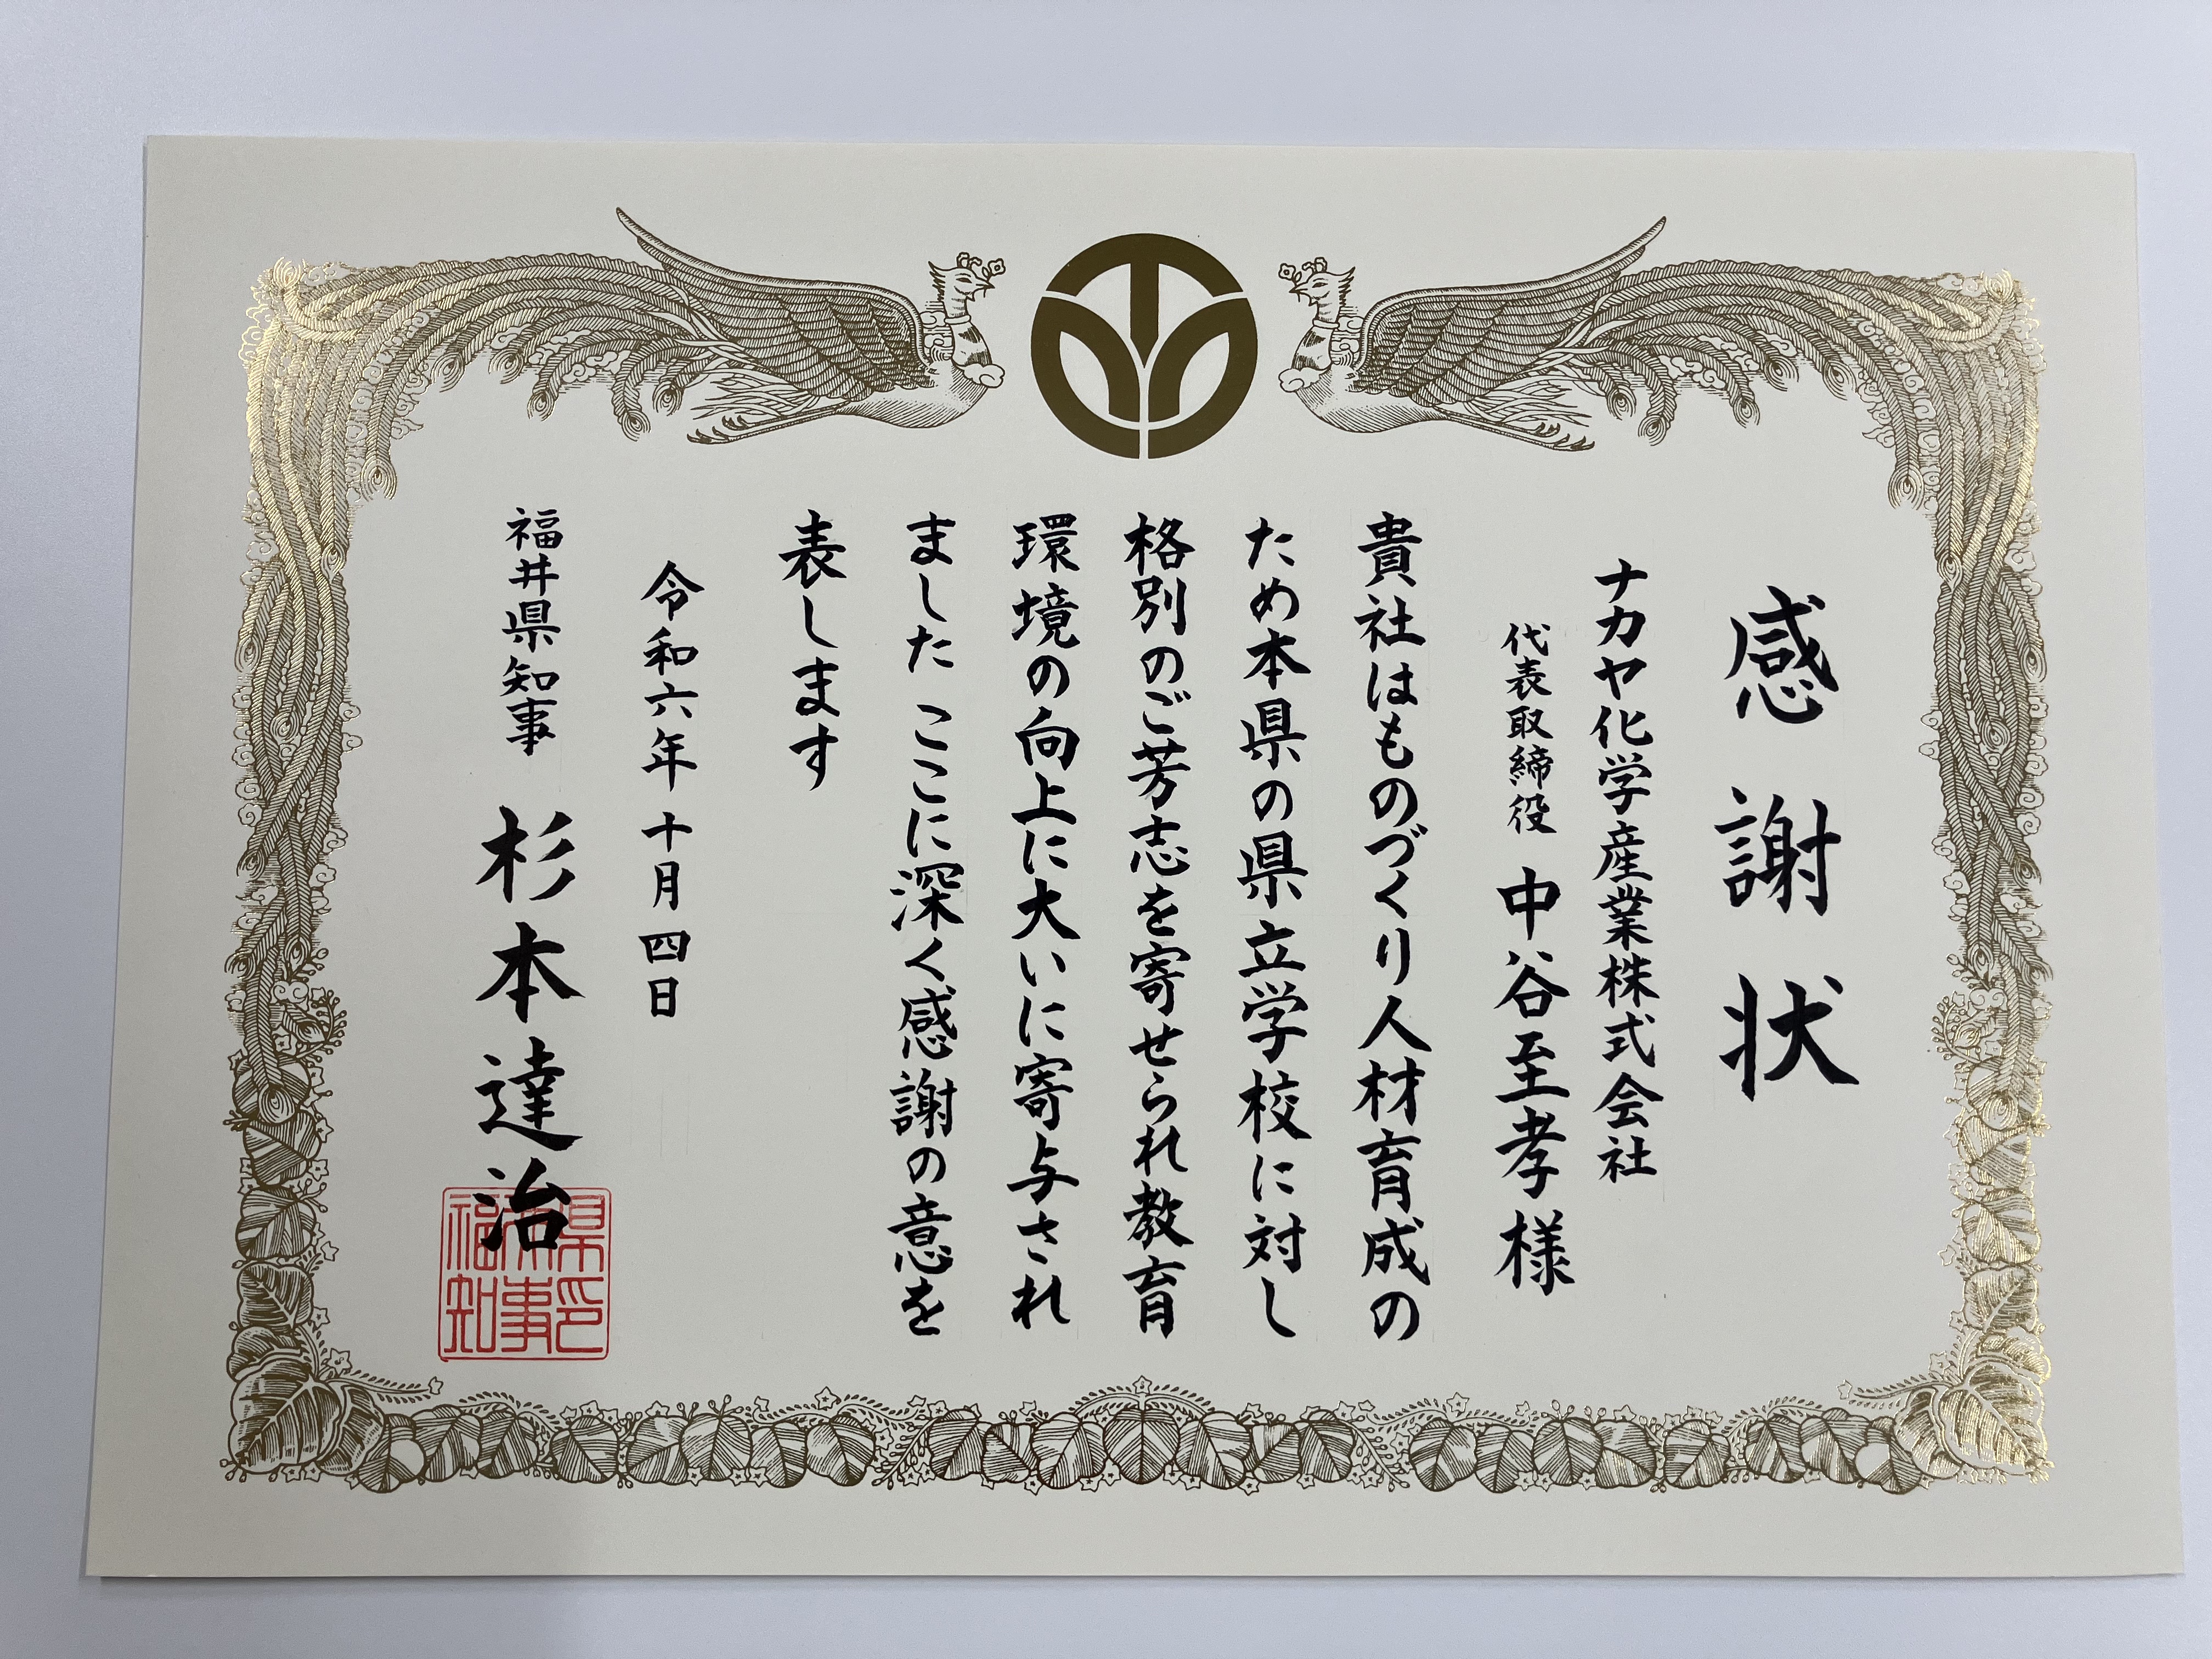 感謝状
ナカヤ化学産業株式会社
代表取締役 中谷至孝様
貴社はものづくり人材育成の
ため本県の県立学校に対し
格別のご芳志を寄せられ教育
環境の向上に大いに寄与され
ました ここに深く感謝の意を
表します
令和六年十月四日
福井県知事 杉本達治
福井県
知事印